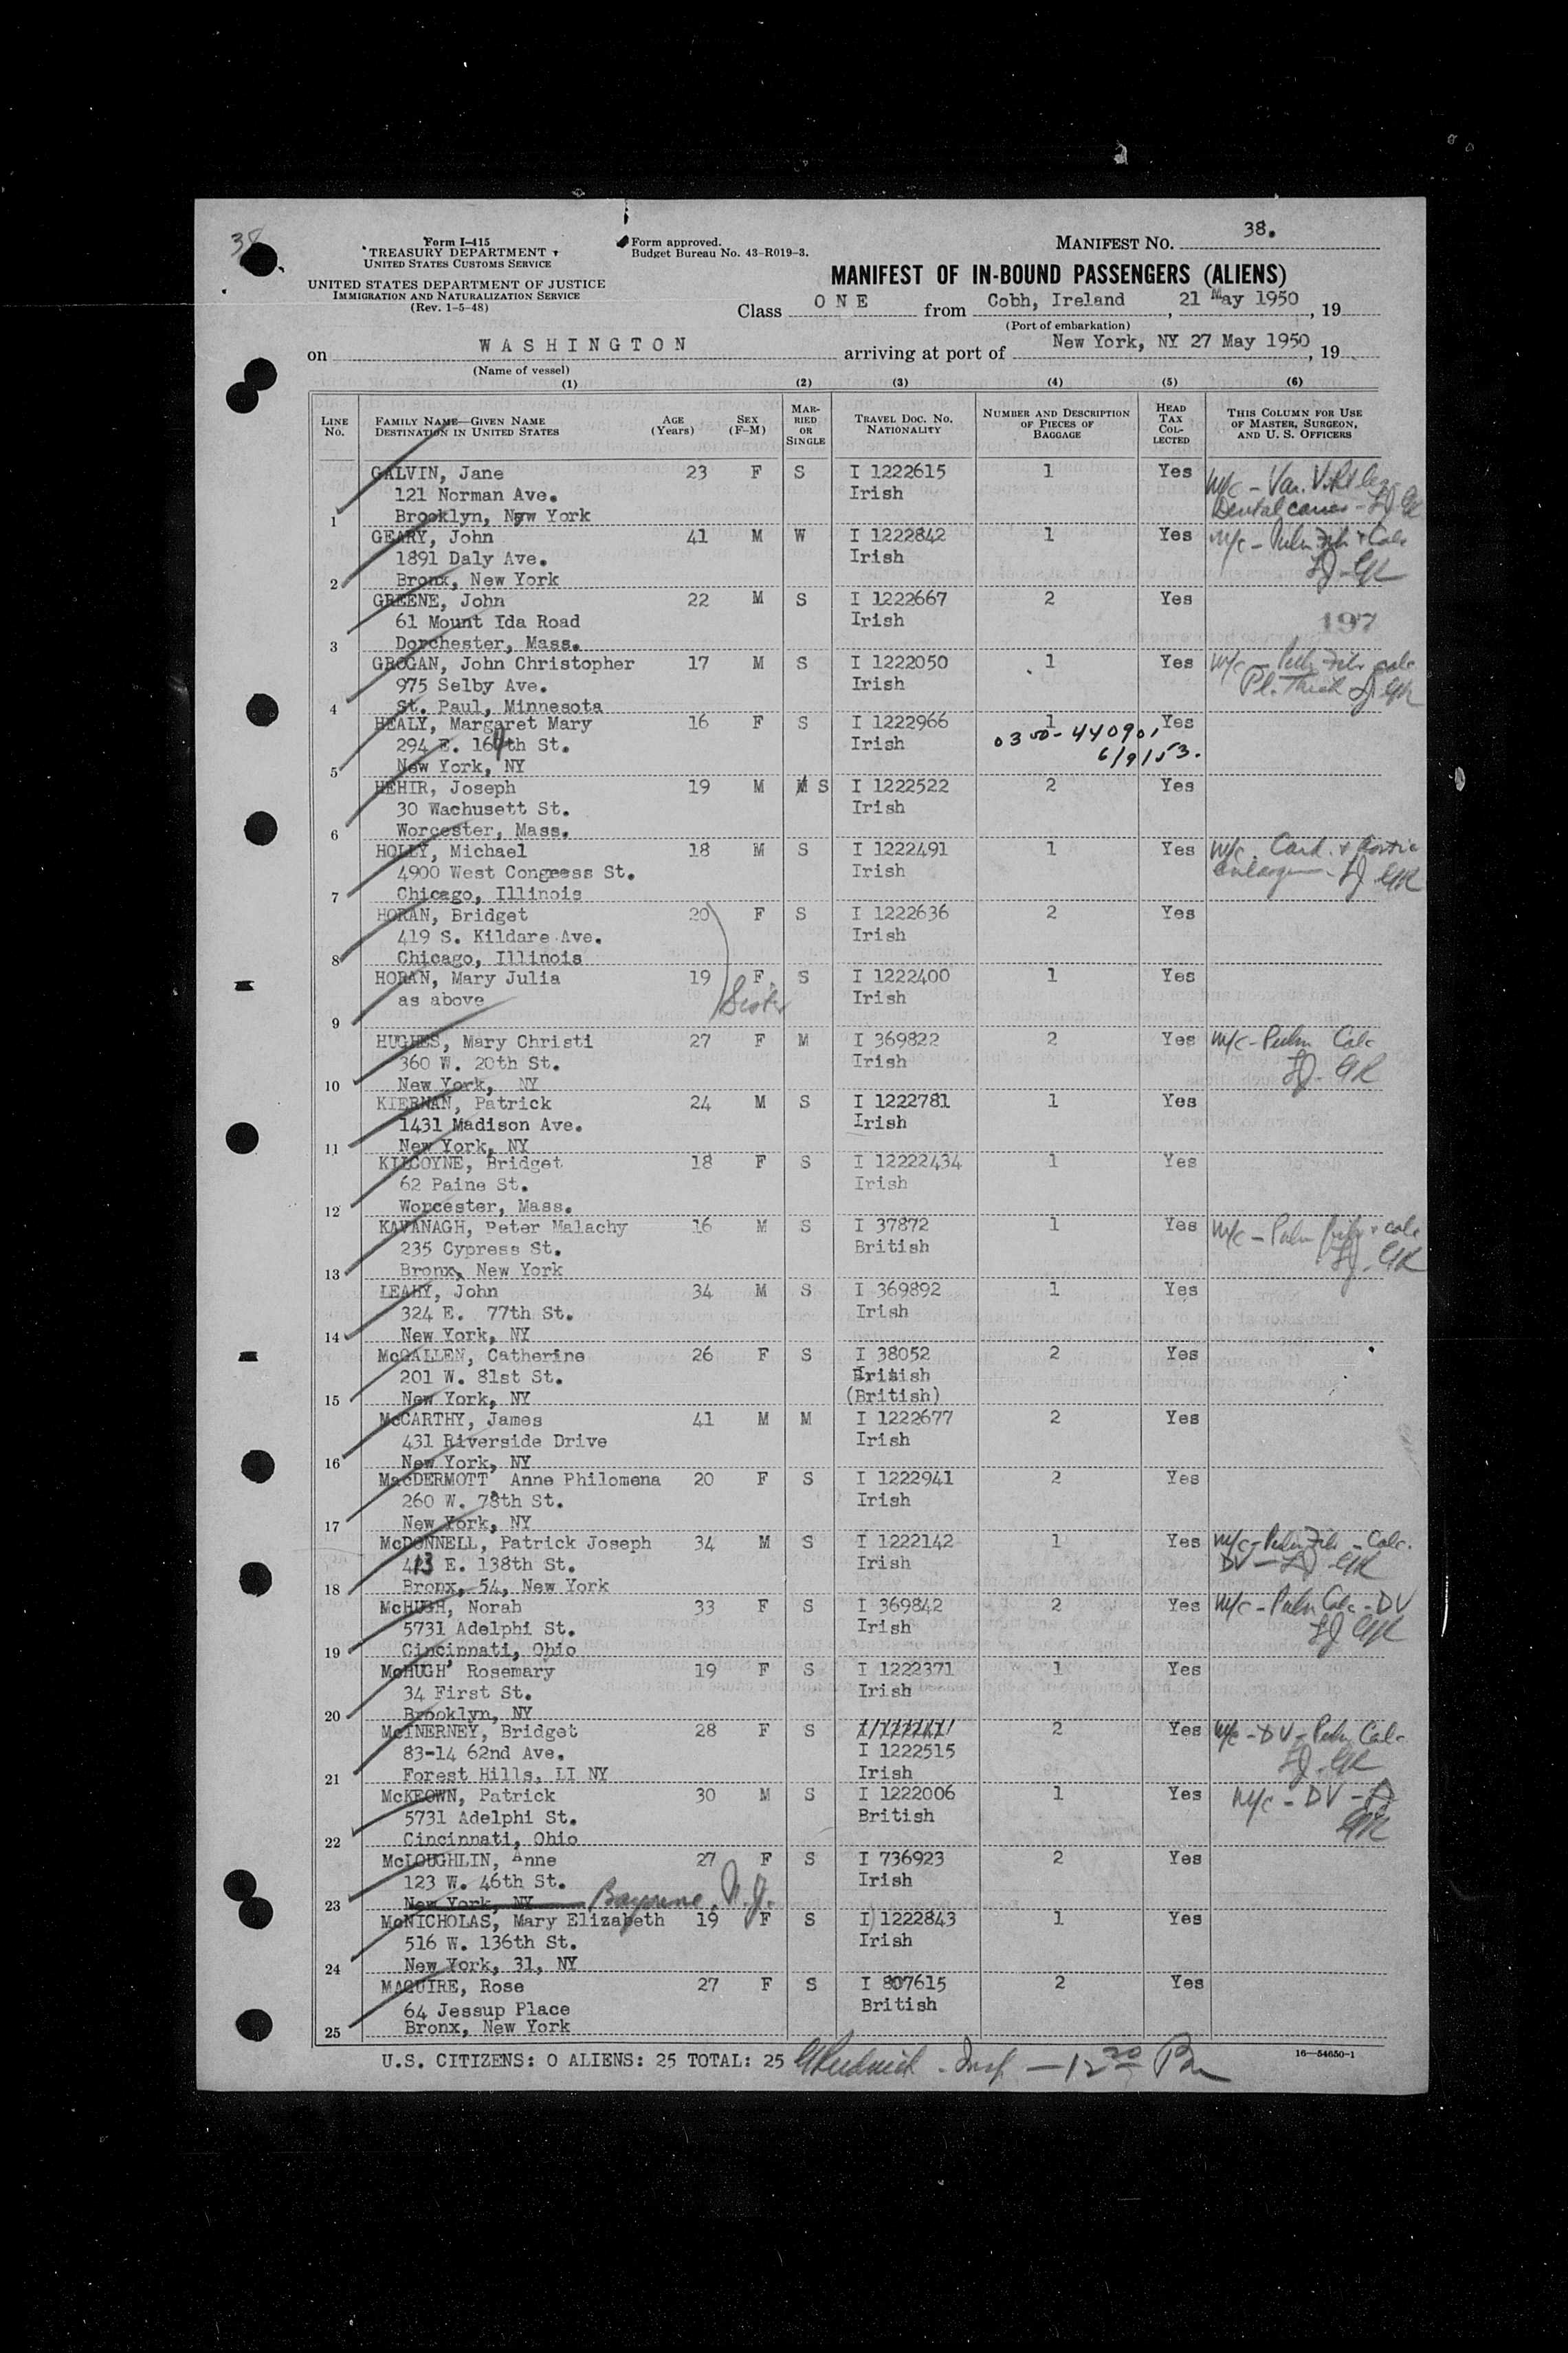 38
38.
Form I-415
TREASURY DEPARTMENT
UNITED STATES CUSTOMS SERVICE
UNITED STATES DEPARTMENT OF JUSTICE
IMMIGRATION AND NATURALIZATION SERVICE
(Rev. 1-5-48)
Form approved.
Budget Bureau No. 43-R019-3.
MANIFEST NO.
MANIFEST OF IN-BOUND PASSENGERS (ALIENS)
Class ONE from Cobh, Ireland, 21 May 1950, 19
(Port of embarkation)
on WASHINGTON arriving at port of New York, NY 27 May 1950, 19
(Name of vessel)
(1) (2) (3) (4) (5) (6)
LINE No. FAMILY NAME—GIVEN NAME DESTINATION IN UNITED STATES AGE (Years) SEX (F-M) MARRIED OR SINGLE TRAVEL DOC. NO. NATIONALITY NUMBER AND DESCRIPTION OF PIECES OF BAGGAGE HEAD TAX COLLECTED THIS COLUMN FOR USE OF MASTER, SURGEON, AND U. S. OFFICERS
GALVIN, Jane 23 F S I 1222615 1 Yes M/c - Var. V. Rt leg
121 Norman Ave. Irish Dental caries - GR
1 Brooklyn, New York
GEARY, John 41 M W I 1222842 1 Yes M/c - Pulm Fib + Calc
1891 Daly Ave. Irish GR
2 Bronx, New York
GREENE, John 22 M S I 1222667 2 Yes
61 Mount Ida Road Irish 197
3 Dorchester, Mass.
GROGAN, John Christopher 17 M S I 1222050 1 Yes M/c - Pulm Fib calc
975 Selby Ave. Irish Pl. Thick GR
4 St. Paul, Minnesota
HEALY, Margaret Mary 16 F S I 1222966 1 Yes
294 E. 164th St. Irish 0300-440901
5 New York, NY 6/9/53.
HEHIR, Joseph 19 M M S I 1222522 2 Yes
30 Wachusett St. Irish
6 Worcester, Mass.
HOLLY, Michael 18 M S I 1222491 1 Yes M/c. Card. + Aortic
4900 West Congress St. Irish enlargem GR
7 Chicago, Illinois
HORAN, Bridget 20 F S I 1222636 2 Yes
419 S. Kildare Ave. Irish
8 Chicago, Illinois
HORAN, Mary Julia 19 F S I 1222400 1 Yes
as above Sister Irish
9
HUGHES, Mary Christi 27 F M I 369822 2 Yes M/c - Pulm Calc
360 W. 20th St. Irish GR
10 New York, NY
KIERNAN, Patrick 24 M S I 1222781 1 Yes
1431 Madison Ave. Irish
11 New York, NY
KILCOYNE, Bridget 18 F S I 12222434 1 Yes
62 Paine St. Irish
12 Worcester, Mass.
KAVANAGH, Peter Malachy 16 M S I 37872 1 Yes M/c - Pulm fib + calc
235 Cypress St. British GR
13 Bronx, New York
LEAHY, John 34 M S I 369892 1 Yes
324 E. 77th St. Irish
14 New York, NY
McCALLEN, Catherine 26 F S I 38052 2 Yes
201 W. 81st St. British
15 New York, NY (British)
McCARTHY, James 41 M M I 1222677 2 Yes
431 Riverside Drive Irish
16 New York, NY
MacDERMOTT, Anne Philomena 20 F S I 1222941 2 Yes
260 W. 78th St. Irish
17 New York, NY
McDONNELL, Patrick Joseph 34 M S I 1222142 1 Yes M/c - Pulm Fib - Calc.
413 E. 138th St. Irish DV - GR
18 Bronx, 54, New York
McHUGH, Norah 33 F S I 369842 2 Yes M/c - Pulm Calc - DV
5731 Adelphi St. Irish GR
19 Cincinnati, Ohio
McHUGH, Rosemary 19 F S I 1222371 1 Yes
34 First St. Irish
20 Brooklyn, NY
McINERNEY, Bridget 28 F S 2 Yes M/c - DV - Pulm Calc
83-14 62nd Ave. I 1222515 GR
21 Forest Hills, LI NY Irish
McKEOWN, Patrick 30 M S I 1222006 1 Yes M/c - DV -
5731 Adelphi St. British GR
22 Cincinnati, Ohio
McLOUGHLIN, Anne 27 F S I 736923 2 Yes
123 W. 46th St. Irish
23 New York, NY Bayonne, N.J.
McNICHOLAS, Mary Elizabeth 19 F S I 1222843 1 Yes
516 W. 136th St. Irish
24 New York, 31, NY
MAGUIRE, Rose 27 F S I 807615 2 Yes
64 Jessup Place British
25 Bronx, New York
U.S. CITIZENS: O ALIENS: 25 TOTAL: 25 Insp - 12 20 Pm
16—54650-1